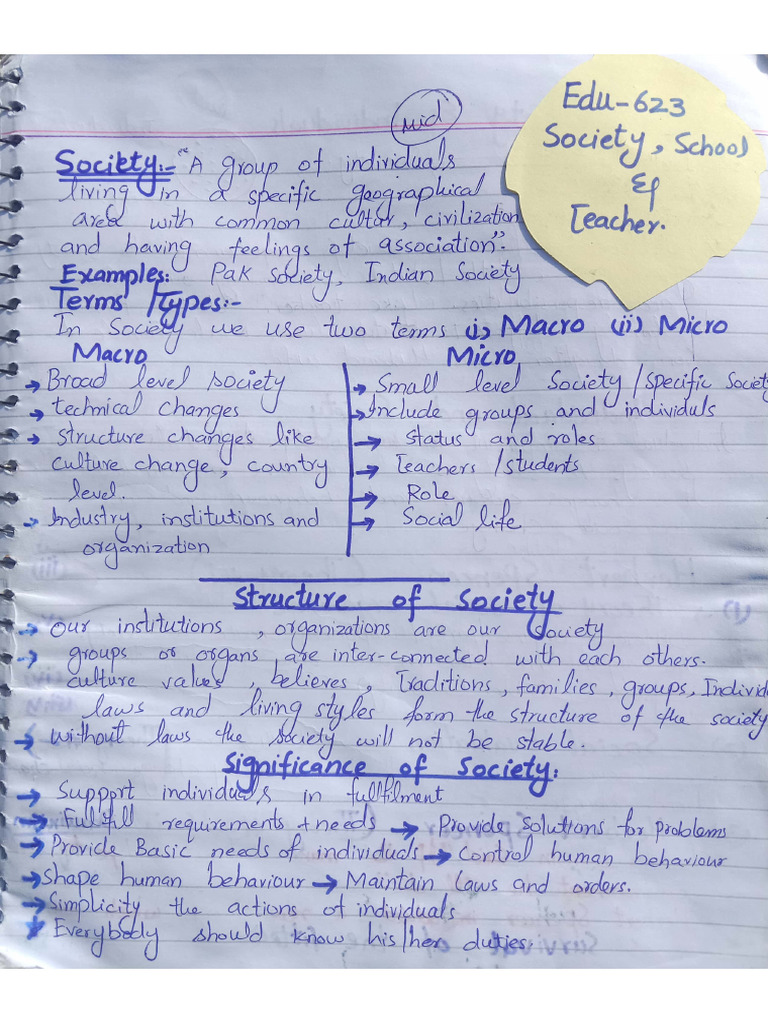 mid
Edu-623
Society, School
&
Teacher.
Society:- "A group of individuals
living in a specific geographical
area with common cultur, civilization
and having feelings of association".
Examples: Pak Society, Indian Society
Terms /Types:-
In Society we use two terms (i) Macro (ii) Micro
Macro
→ Broad level society
→ technical changes
→ structure changes like
culture change, country
level.
→ Industry, institutions and
organization
Micro
→ Small level Society / specific Society
→ Include groups and individuls
→ status and roles
→ Teachers / students
→ Role
→ Social life
Structure of Society
→ Our institutions, organizations are our Society
→ groups or organs are inter-connected with each others.
culture values, believes, Traditions, families, groups, Individ
laws and living styles form the structure of the society
→ without laws the society will not be stable.
Significance of Society:
→ Support individuals in fullfilment
→ Fulfill requirements + needs → Provide solutions for problems
→ Provide Basic needs of individuals → Control human behaviour
→ Shape human behaviour → Maintain laws and orders.
→ Simplicity the actions of individuals
→ Everybody should know his/her duties.